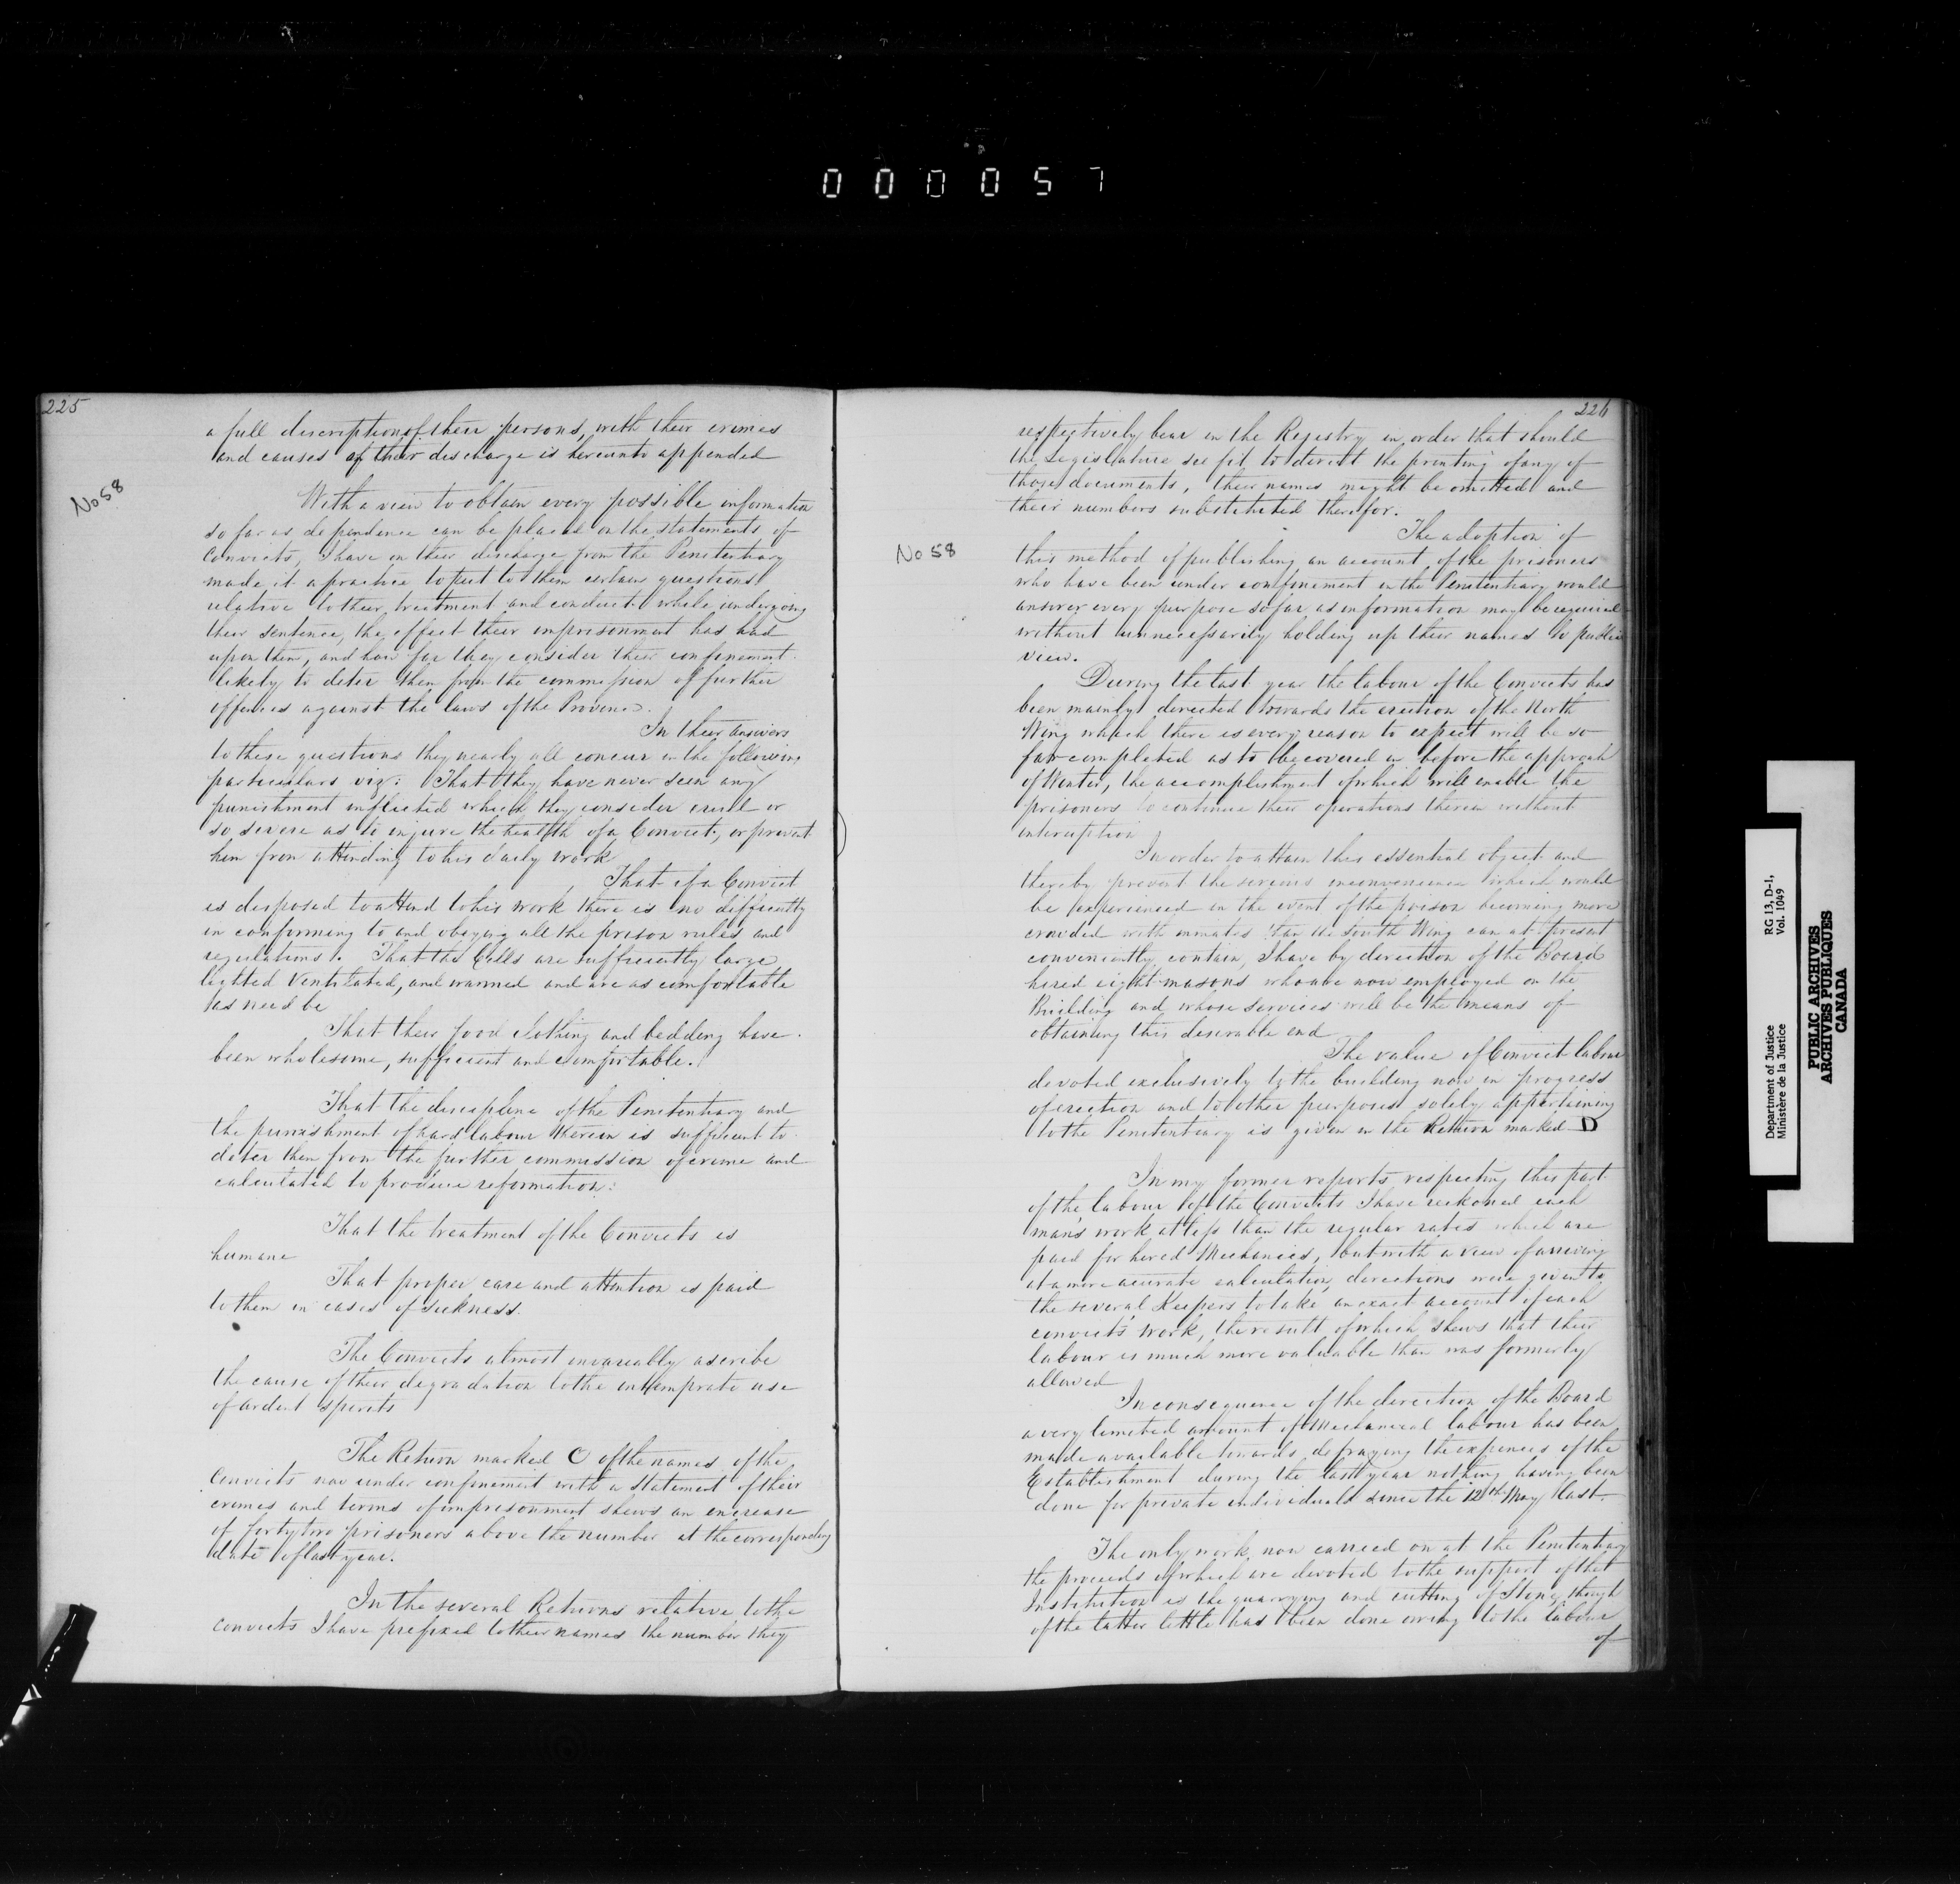 000057
225
a full discription of their persons, with their crimes
and causes of their discharge is hereunto appended
No 58
With a view to obtain every possible information
so far as dependence can be placed on the statements of
Convicts, I have on their discharge from the Penitentiary
made it a practice to put to them certain questions
relative to their treatment and conduct while undergoing
their sentence, the effect their imprisonment has had
upon them, and how far they consider their confinement
likely to deter them from the commission of further
offences against the laws of the Province.
In their answers
to these questions they nearly all concur in the following
particulars viz: That they have never seen any
punishment inflicted which they consider cruel or
so severe as to injure the health of a Convict, or prevent
him from attending to his daily work
That if a Convict
is disposed to attend to his work there is no difficulty
in conforming to and obeying all the prison rules and
regulations. That the Cells are sufficiently large
lighted Ventilated, and warmed and are as comfortable
as need be
That their food clothing and bedding have
been wholesome, sufficient and comfortable.
That the discipline of the Penitentiary and
the punishment of hard labour therein is sufficient to
deter them from the further commission of crime and
calculated to produce reformation:
That the treatment of the Convicts is
humane
That proper care and attention is paid
to them in cases of sickness.
The Convicts almost invariably ascribe
the cause of their degradation to the intemprate use
of ardent spirits
The Return marked C of the names of the
Convicts now under confinement with a Statement of their
crimes and terms of imprisonment shews an encrease
of forty two prisoners above the number at the corresponding
date of last year.
In the several Returns relative to the
convicts I have prefixed to their names the number they
226
respectively bear in the Registry in order that should
the Legislature see fit to direct the printing of any of
those documents, their names might be omitted and
their numbers substituted therefor.
The adoption of
No 58
this method of publishing an account of the prisoners
who have been under confinement in the Penitentiary would
answer every purpose so far as information may be required
without unnecessarily holding up their names to public
view.
During the last year the labour of the Convicts has
been mainly directed towards the erection of the North
Wing which there is every reason to expect will be so
far completed as to be covered in before the approach
of Winter, the accomplishment of which will enable the
prisoners to continue their operations therein without
interuption
In order to attain this essential object and
thereby prevent the serious inconvenience which would
be experienced in the event of the prison becoming more
crowded with inmates than the South Wing can at present
conveniently contain, I have by direction of the Board
hired eight masons who are now employed on the
Building and whose services will be the means of
obtaining this desirable end
The value of Convict labour
devoted exclusively to the building now in progress
of erection and to other purposes solely appertaining
to the Penitentiary is given in the Return marked D
In my former reports respecting this part
of the labour of the Convicts I have reckoned each
man's work at less than the regular rates which are
paid for hired Mechanics, but with a view of arriving
at a more acurate calculation, directions were given to
the several Keepers to take an exact account of each
convict's work, the result of which shews that their
labour is much more valuable than was formerly
allowed
In consequence of the direction of the Board
a very limited amount of Mechanical labour has been
made available towards defraying the expences of the
Establishment during the last year nothing having been
done for private individuals since the 12th May last.
The only work now carried on at the Penitentiary
the proceeds of which are devoted to the support of that
Institution is the quarrying and cutting of Stone, though
of the latter little has been done owing to the labour
of
Department of Justice RG 13, D-1,
Ministère de la Justice Vol. 1049
PUBLIC ARCHIVES
ARCHIVES PUBLIQUES
CANADA